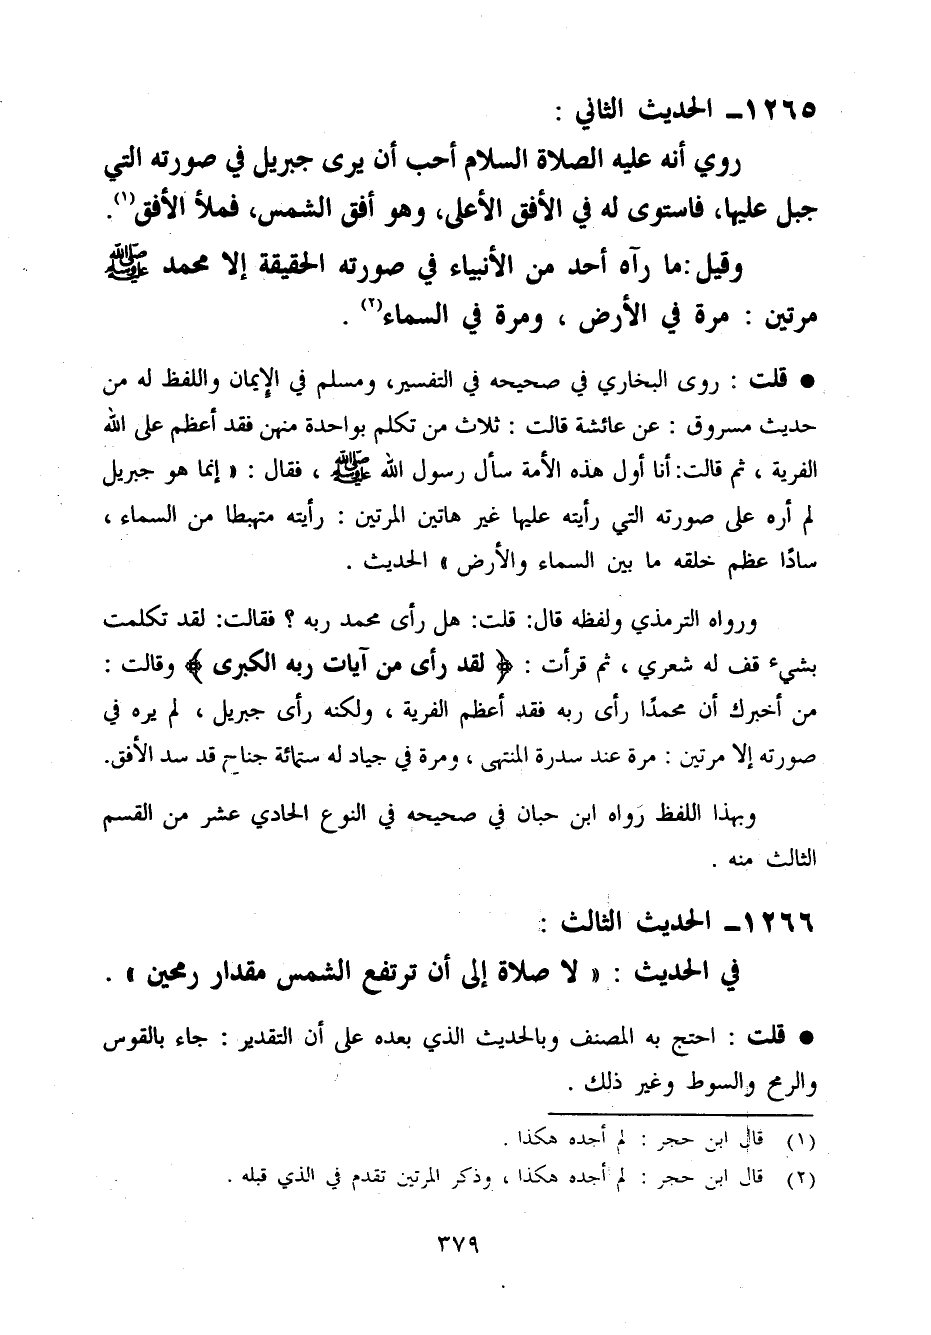 ١٢٦٥ــ الحديث الثاني :
روي أنه عليه الصلاة السلام أحب أن يرى جبريل في صورته التي
جبل عليها، فاستوى له في الأفق الأعلى، وهو أفق الشمس، فملأ الأفق(١).
وقيل :ما رآه أحد من الأنبياء في صورته الحقيقة إلا محمد ﷺ
مرتين : مرة في الأرض ، ومرة في السماء(٢) .
● قلت : روى البخاري في صحيحه في التفسير، ومسلم في الإيمان واللفظ له من
حديث مسروق : عن عائشة قالت : ثلاث من تكلم بواحدة منهن فقد أعظم على الله
الفرية ، ثم قالت: أنا أول هذه الأمة سأل رسول الله ﷺ ، فقال : « إنما هو جبريل
لم أره على صورته التي رأيته عليها غير هاتين المرتين : رأيته متهبطا من السماء ،
سادًا عظم خلقه ما بين السماء والأرض » الحديث .
ورواه الترمذي ولفظه قال: قلت: هل رأى محمد ربه ؟ فقالت: لقد تكلمت
بشيء قف له شعري ، ثم قرأت : ﴿ لقد رأى من آيات ربه الكبرى ﴾ وقالت :
من أخبرك أن محمدًا رأى ربه فقد أعظم الفرية ، ولكنه رأى جبريل ، لم يره في
صورته إلا مرتين : مرة عند سدرة المنتهى ، ومرة في جياد له ستمائة جناح قد سد الأفق.
وبهذا اللفظ رواه ابن حبان في صحيحه في النوع الحادي عشر من القسم
الثالث منه .
١٢٦٦ــ الحديث الثالث :
في الحديث : « لا صلاة إلى أن ترتفع الشمس مقدار رمحين » .
● قلت : احتج به المصنف وبالحديث الذي بعده على أن التقدير : جاء بالقوس
والرمح والسوط وغير ذلك .
(١) قال ابن حجر : لم أجده هكذا .
(٢) قال ابن حجر : لم أجده هكذا ، وذكر المرتين تقدم في الذي قبله .
٣٧٩